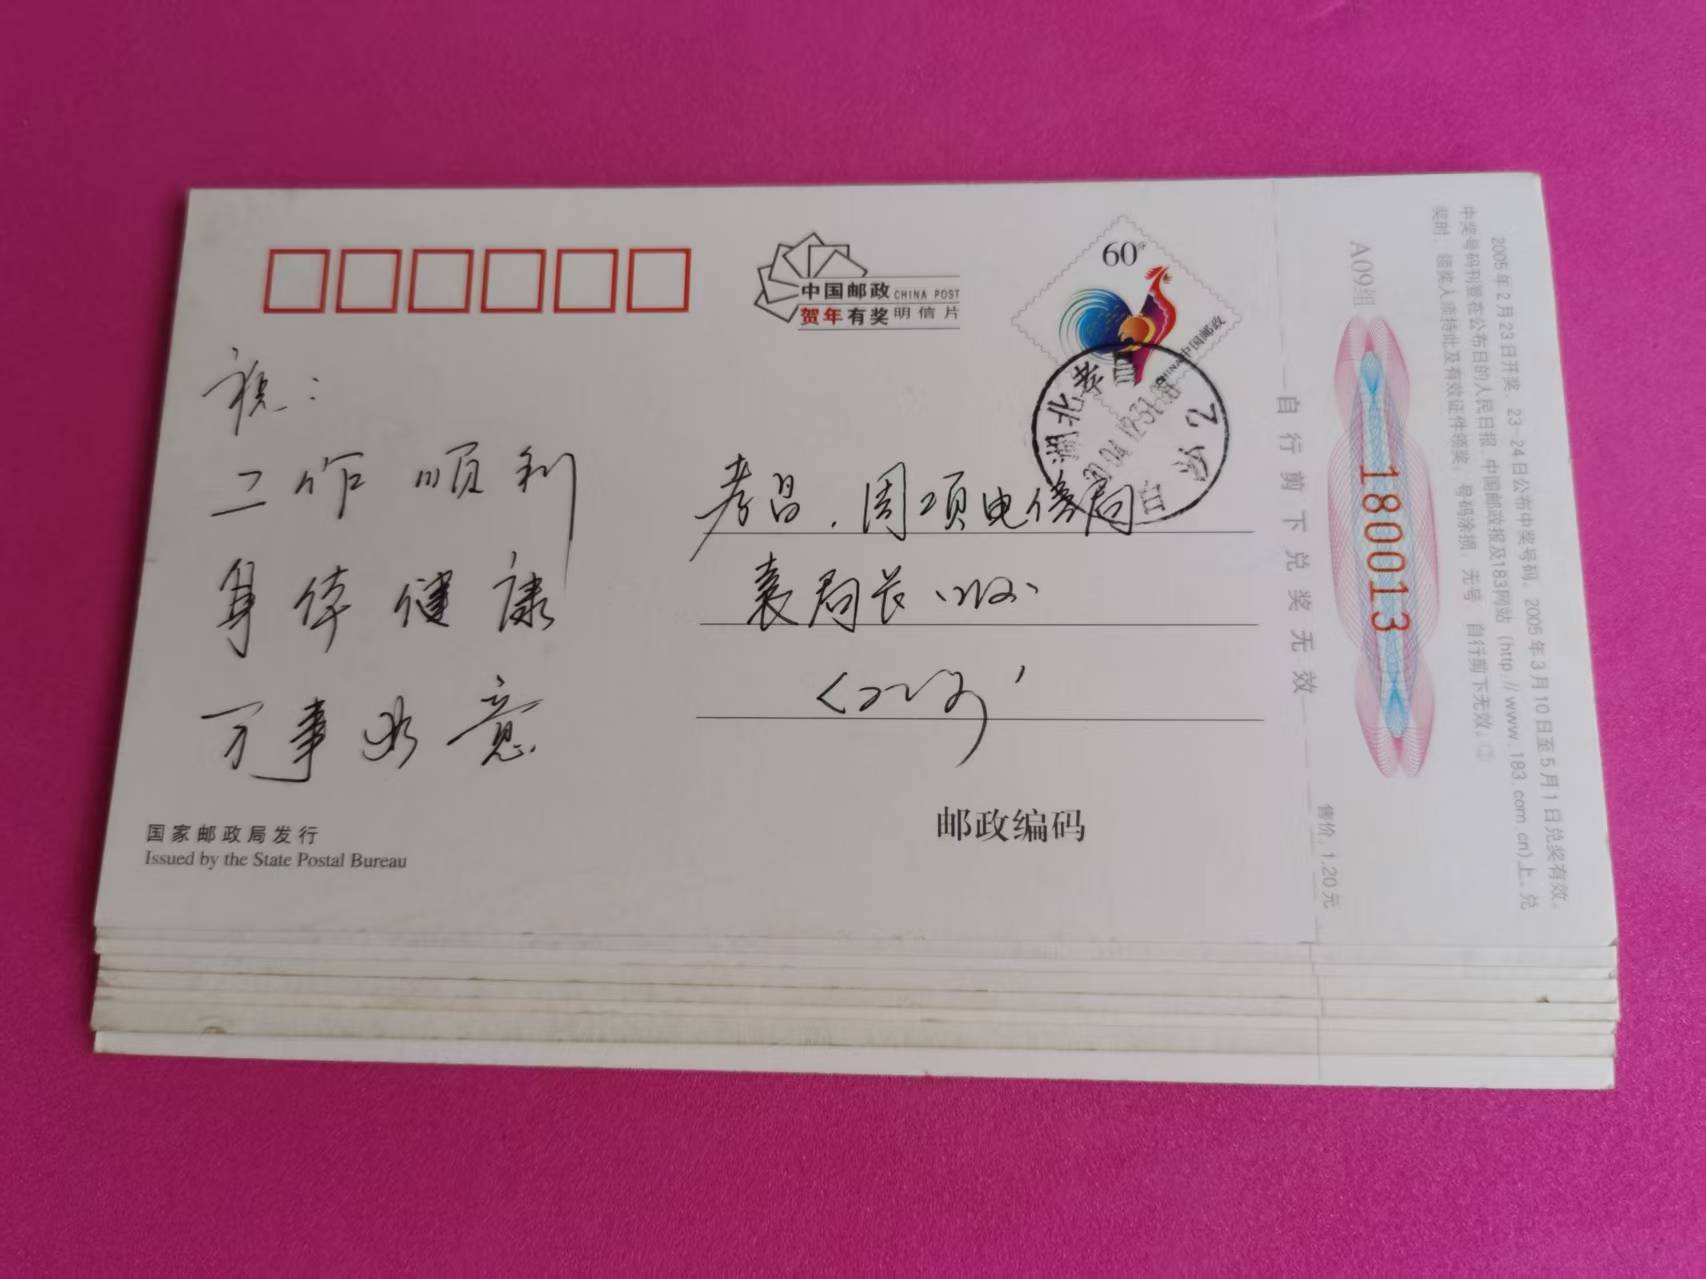 中国邮政 CHINA POST
贺年有奖明信片
60分
中国邮政
CHINA
湖北孝昌
2004.12.31
白沙
祝：
工作顺利
身体健康
万事如意
孝昌．周项电信局
袁局长
国家邮政局发行
Issued by the State Postal Bureau
邮政编码
自行剪下兑奖无效
售价：1.20元
A09组
180013
2005年2月23日开奖，23-24日公布中奖号码，2005年3月10日至5月1日兑奖有效。
中奖号码刊登在公布日的人民日报、中国邮政报及183网站（http://www.183.com.cn）上。兑
奖时，领奖人须持此及有效证件领奖，号码涂损、无号、自行剪下无效。